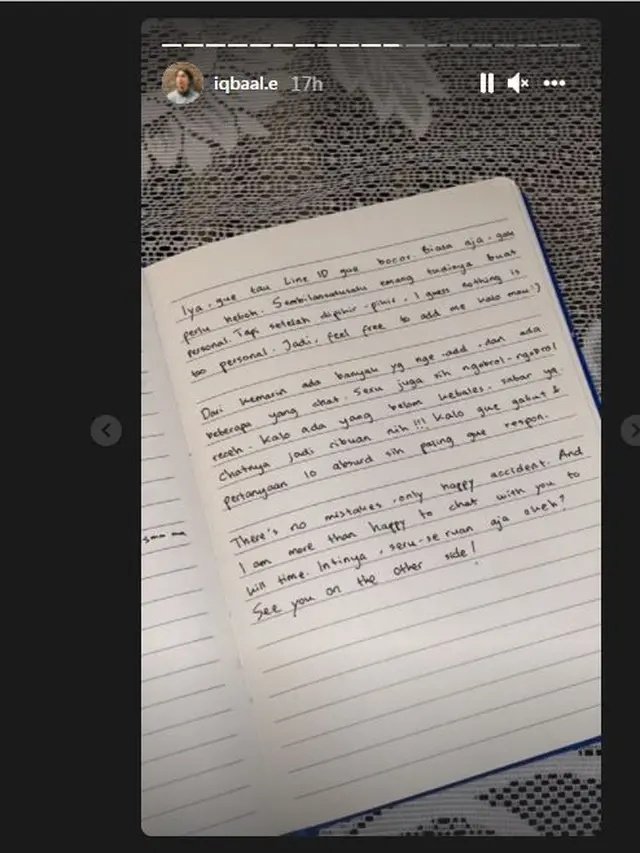 iqbaal.e 17h
Iya, gue tau Line ID gue bocor. Biasa aja, gau
perlu heboh. Sembilansatusatu emang tadinya buat
personal. Tapi setelah dipikir-pikir, I guess nothing is
too personal. Jadi, feel free to add me kalo mau!)
Dari kemarin ada banyak yg nge-add, dan ada
beberapa yang chat. Seru juga sih ngobrol-ngobrol
receh. Kalo ada yang belom kebales, sabar ya.
chatnya jadi ribuan nih!!! Kalo gue gabut &
pertanyaan lo absurd sih paling gue respon.
There's no mistakes, only happy accident. And
I am more than happy to chat with you to
kill time. Intinya, seru-seruan aja okeh?
See you on the other side!